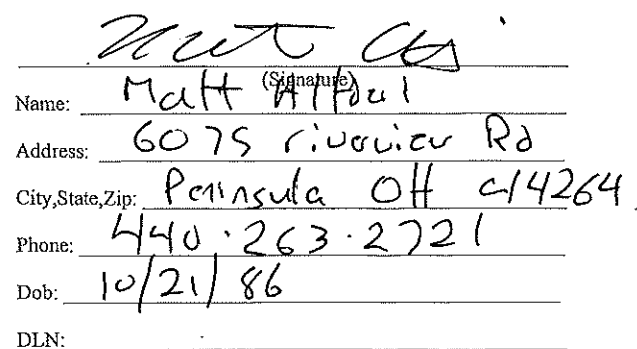 (Signature)
Name: Matt
Address: 6075 riverview Rd
City,State,Zip: Peninsula OH 44264
Phone: 440.263.2721
Dob: 10/21/86
DLN: